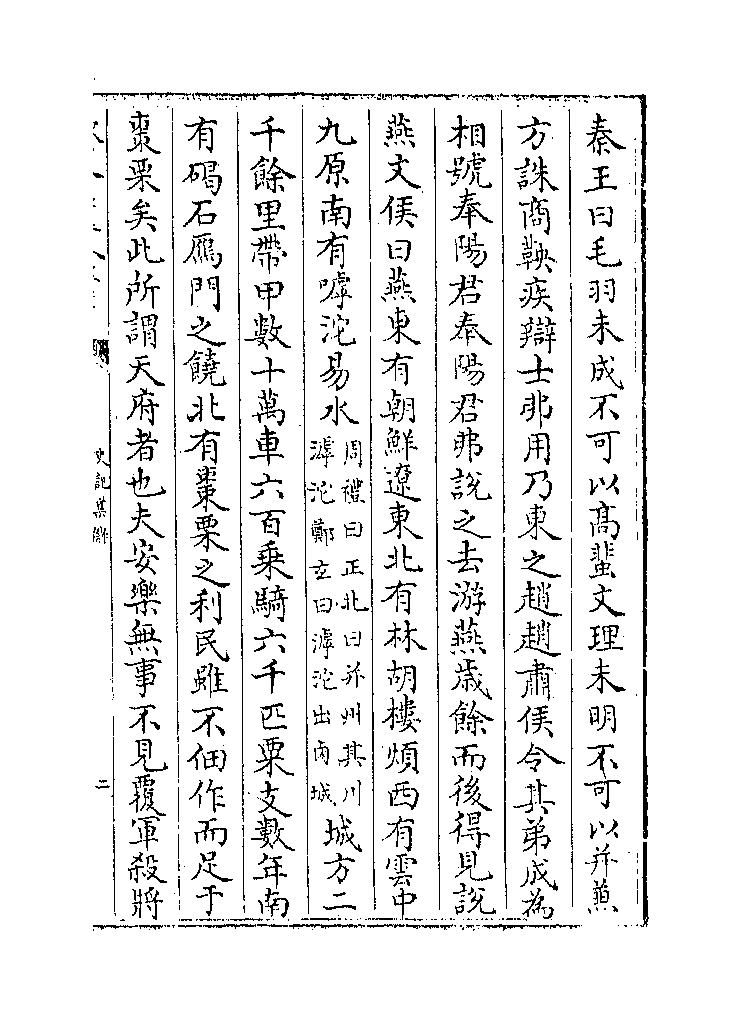 秦王曰毛羽未成不可以髙蜚文理未明不可以并兼
方誅商鞅疾辯士弗用乃東之趙趙肅侯令其弟成為
相號奉陽君奉陽君弗説之去游燕歳餘而後得見説
燕文侯曰燕東有朝鮮遼東北有林胡樓煩西有雲中
九原南有嘑沱易水周禮曰正北曰并州其川滹沱鄭玄曰滹沱出鹵城城方二
千餘里帶甲數十萬車六百乗騎六千匹粟支數年南
有碣石鴈門之饒北有棗栗之利民雖不佃作而足于
棗栗矣此所謂天府者也夫安樂無事不見覆軍殺將
史記集解
二